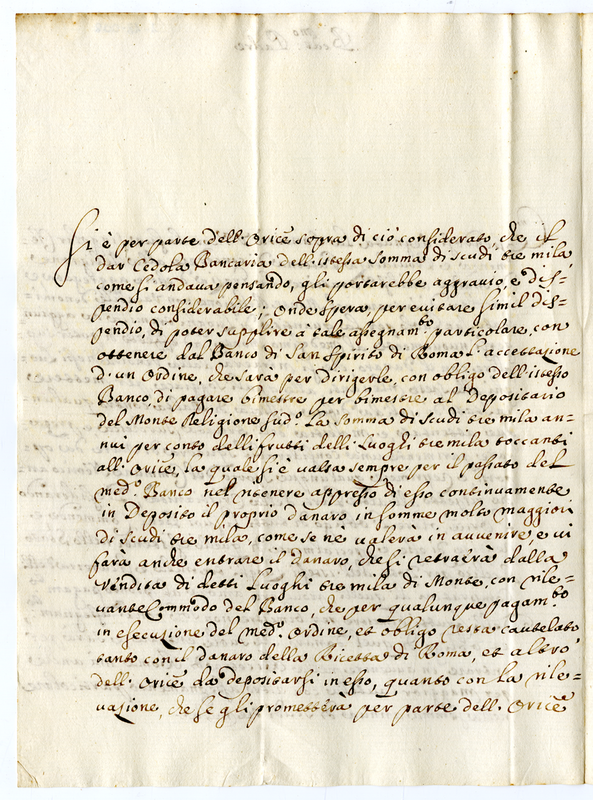 Si è per parte dell'Orice sopra di ciò considerato, che il
dar Cedola Bancaria dell'istessa somma di scudi tre mila
come si andava pensando, gli portarebbe aggravio, e dis=
pendio considerabile; Onde spera, per evitare simil dis=
pendio, di poter supplire à tale assegnam.to particolare, con
ottenere dal Banco di San Spirito di Roma l'accettazione
d'un Ordine, che sarà per dirigerle, con obligo dell'istesso
Banco, di pagare bimestre per bimestre al Depositario
del Monte Religione sud.o la somma di scudi tre mila an=
nui per conto delli frutti delli Luoghi tre mila toccanti
all'Orice, la quale si è valsa sempre per il passato del
med.o Banco nel ritenere appresso di esso continuamente
in Deposito il proprio danaro in somme molto maggiori
di scudi tre mila, come se nè valerà in avvenire, e vi
farà anche entrare il danaro, che si retraerà dalla
vendita di detti Luoghi tre mila di Monte, con rile=
vante Commodo del Banco, che per qualunque pagam.to
in esecuzione del med.o Ordine, et obligo resta cautelato
tanto con il danaro della Ricetta di Roma, et altro
dell'Orice da depositarsi in esso, quanto con la rile=
vazione, che se gli prometterà per parte dell'Orice